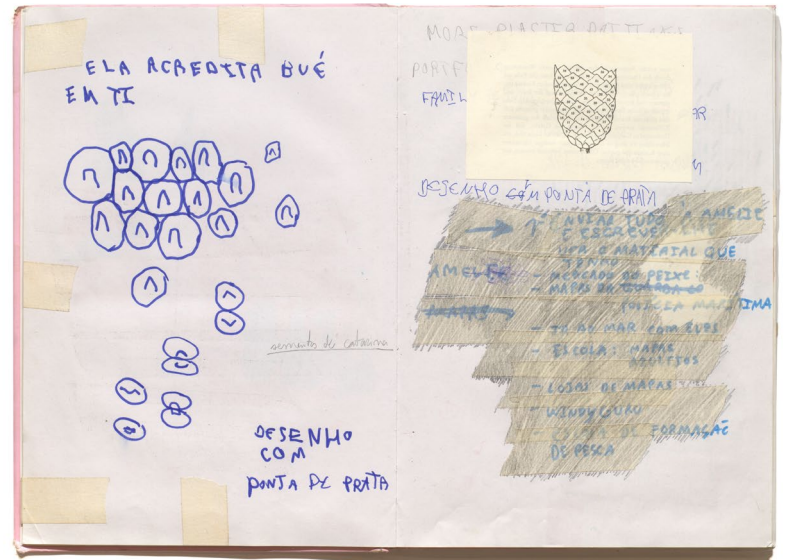 ELA ACREDITA BUÉ
EM TI
sementes de catarina
DESENHO
COM
PONTA DE PRATA
MOAS PLASTER
PORTF
FAMIL
AR
M
DESENHO COM PONTA DE PRATA
ENVIAR TUDO À AMELIE
E ESCREVER-LHE
VER O MATERIAL QUE
TENHO
AMELIE
- MERCADO DO PEIXE
- MAPAS DA GUARDA CO
POLÍCIA MARÍTIMA
MAPAS
- IR AO MAR COM EUPS
- ESCOLA: MAPAS
- LOJAS DE MAPAS
- WINDYGURU
DE FORMAÇÃO
DE PESCA